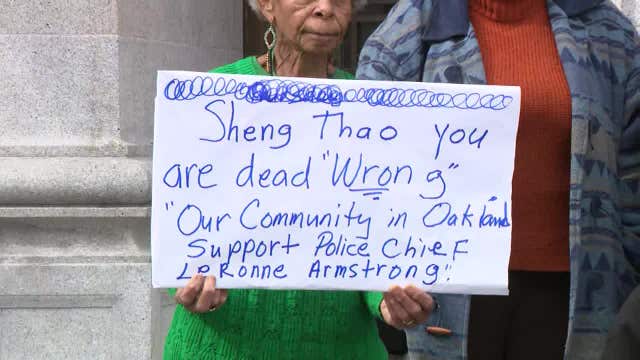 Sheng Thao you
are dead "Wrong"
"Our Community in Oakland
Support Police Chief
LeRonne Armstrong".